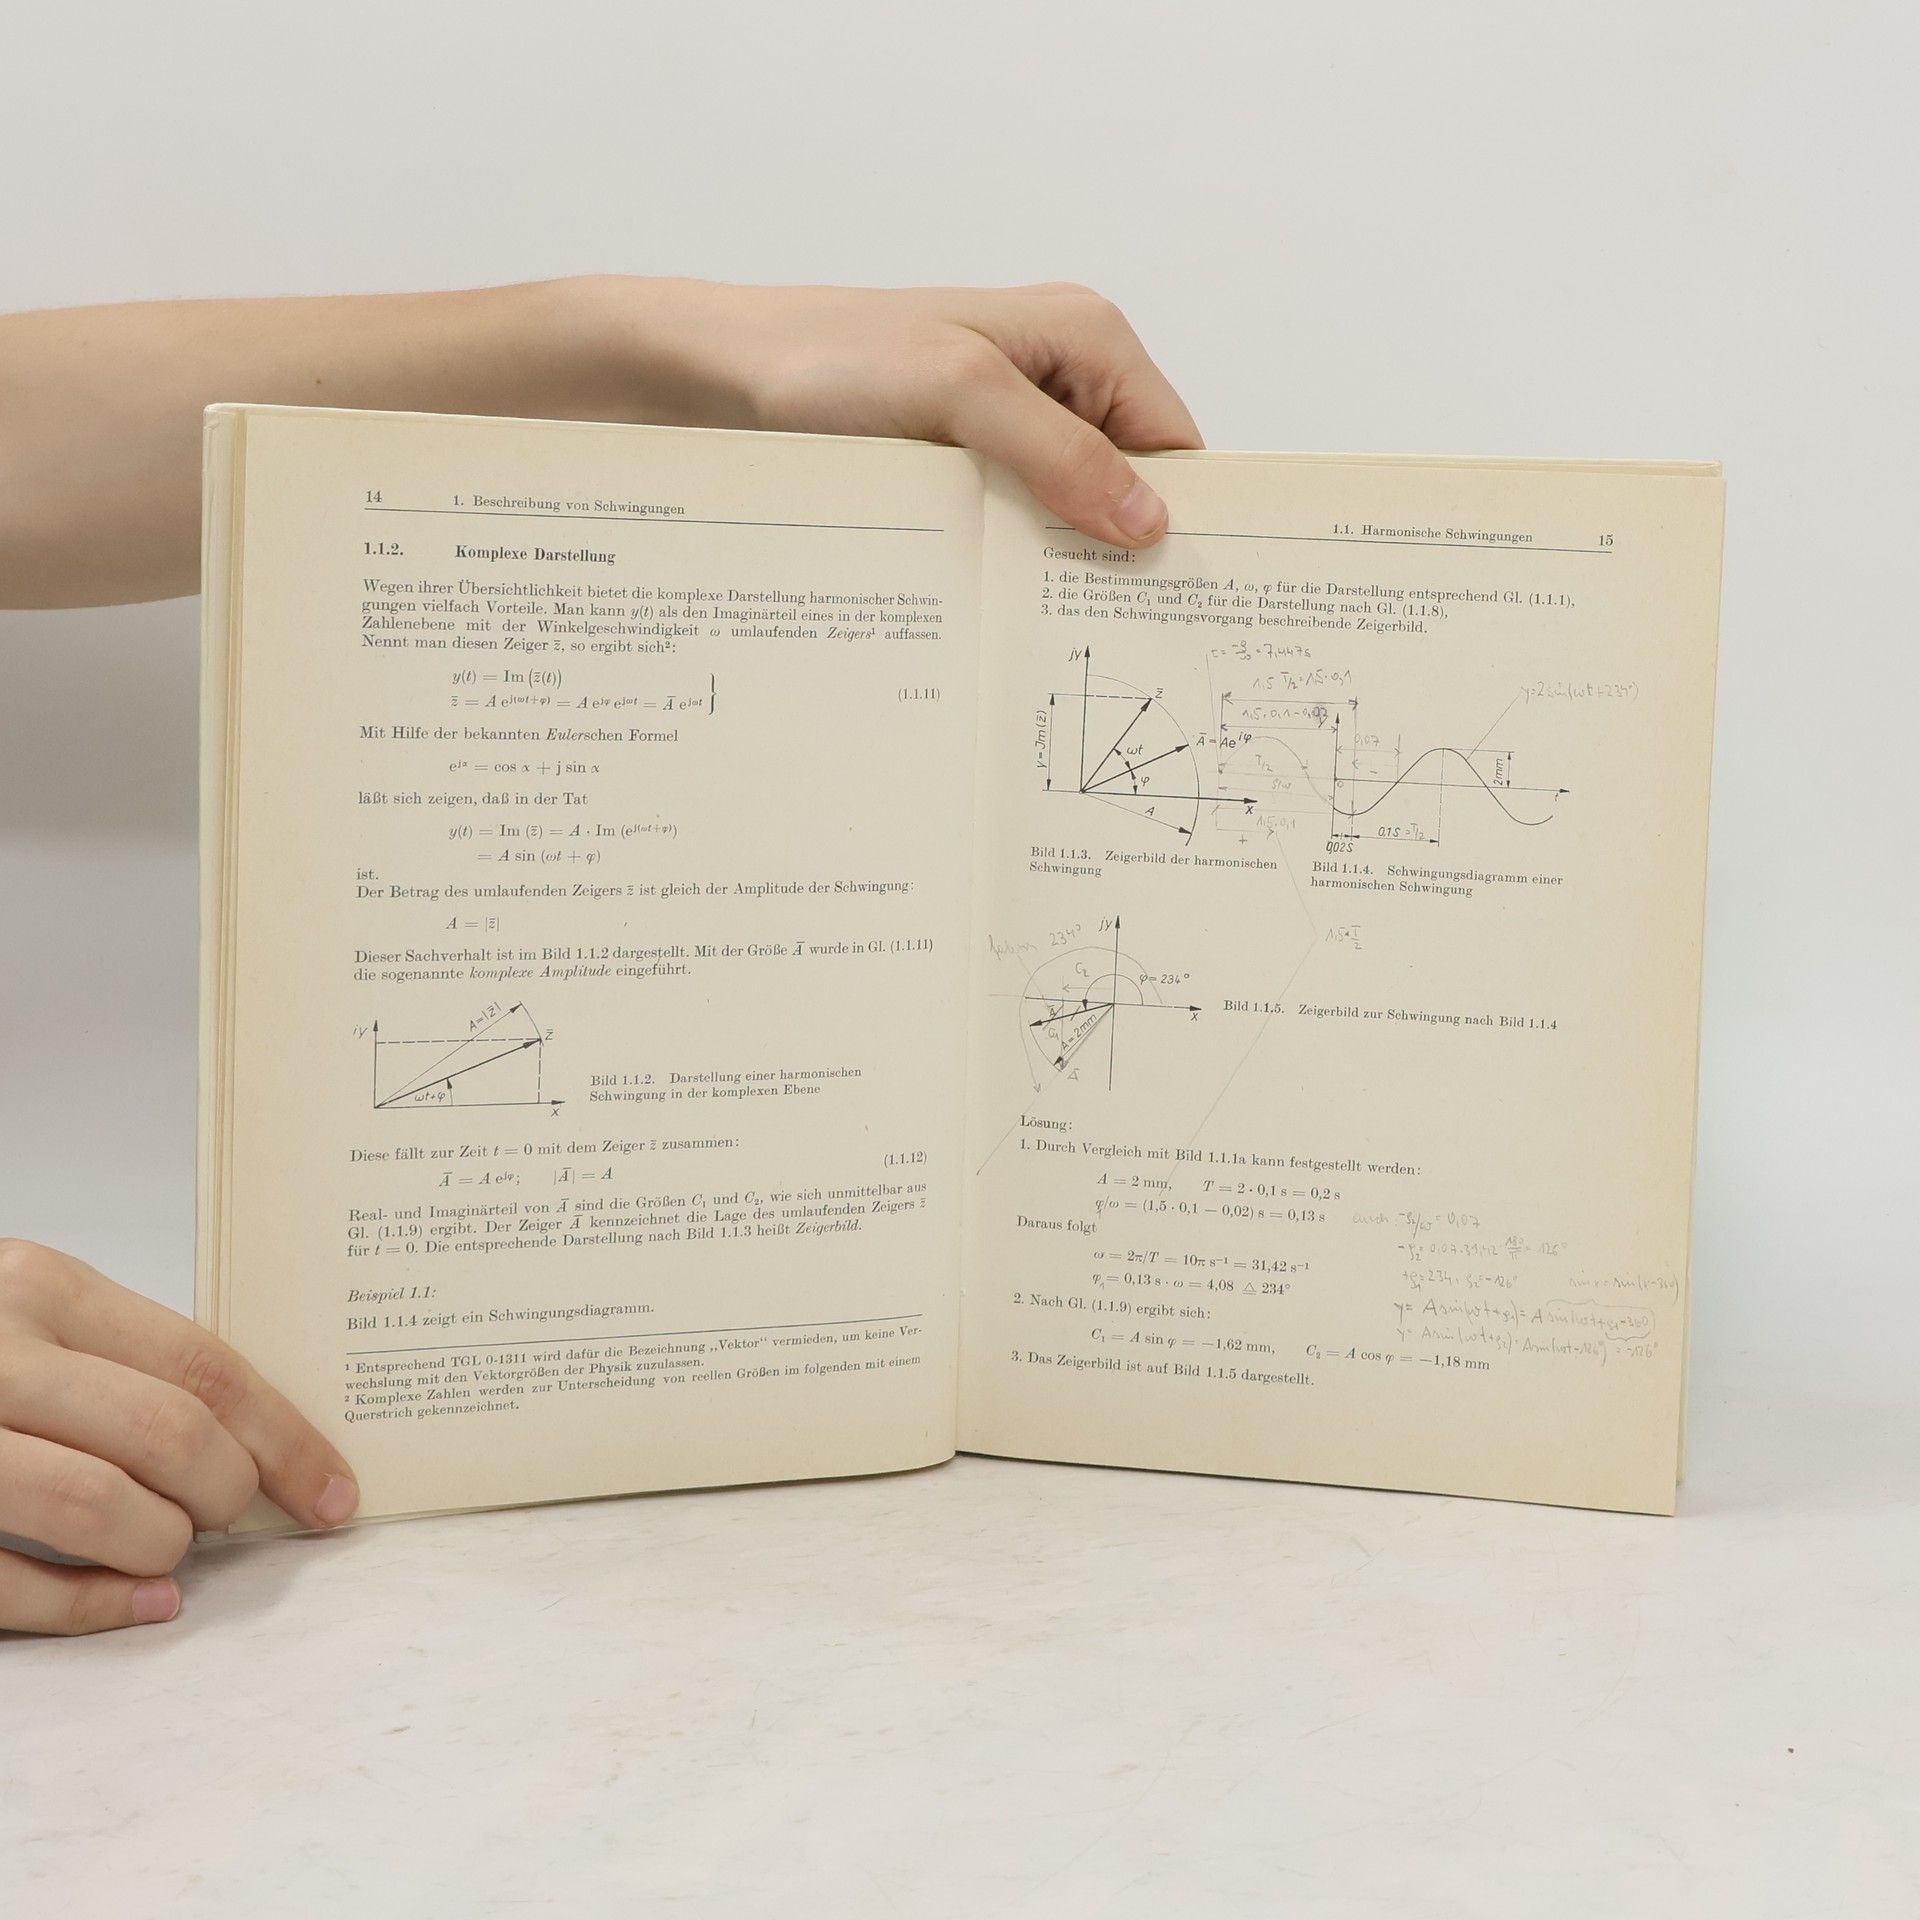 14 1. Beschreibung von Schwingungen
1.1.2. Komplexe Darstellung
Wegen ihrer Übersichtlichkeit bietet die komplexe Darstellung harmonischer Schwin-
gungen vielfach Vorteile. Man kann y(t) als den Imaginärteil eines in der komplexen
Zahlenebene mit der Winkelgeschwindigkeit ω umlaufenden Zeigers¹ auffassen.
Nennt man diesen Zeiger z̄, so ergibt sich²:
y(t) = Im (z̄(t))
z̄ = A e^j(ωt+φ) = A e^jφ e^jωt = Ā e^jωt (1.1.11)
Mit Hilfe der bekannten Eulerschen Formel
e^jα = cos α + j sin α
läßt sich zeigen, daß in der Tat
y(t) = Im (z̄) = A · Im (e^j(ωt+φ))
= A sin (ωt + φ)
ist.
Der Betrag des umlaufenden Zeigers z̄ ist gleich der Amplitude der Schwingung:
A = |z̄|
Dieser Sachverhalt ist im Bild 1.1.2 dargestellt. Mit der Größe Ā wurde in Gl. (1.1.11)
die sogenannte komplexe Amplitude eingeführt.
jy
A=|z̄|
z̄
ωt+φ
x
Bild 1.1.2. Darstellung einer harmonischen
Schwingung in der komplexen Ebene
Diese fällt zur Zeit t = 0 mit dem Zeiger z̄ zusammen:
Ā = A e^jφ; |Ā| = A (1.1.12)
Real- und Imaginärteil von Ā sind die Größen C₁ und C₂, wie sich unmittelbar aus
Gl. (1.1.9) ergibt. Der Zeiger Ā kennzeichnet die Lage des umlaufenden Zeigers z̄
für t = 0. Die entsprechende Darstellung nach Bild 1.1.3 heißt Zeigerbild.
Beispiel 1.1:
Bild 1.1.4 zeigt ein Schwingungsdiagramm.
¹ Entsprechend TGL 0-1311 wird dafür die Bezeichnung „Vektor“ vermieden, um keine Ver-
wechslung mit den Vektorgrößen der Physik zuzulassen.
² Komplexe Zahlen werden zur Unterscheidung von reellen Größen im folgenden mit einem
Querstrich gekennzeichnet.
1.1. Harmonische Schwingungen 15
Gesucht sind:
1. die Bestimmungsgrößen A, ω, φ für die Darstellung entsprechend Gl. (1.1.1),
2. die Größen C₁ und C₂ für die Darstellung nach Gl. (1.1.8),
3. das den Schwingungsvorgang beschreibende Zeigerbild.
jy
z̄
y=Jm(z̄)
Ā=Ae^jφ
ωt
φ
A
x
1,5 T/2=1,5·0,1
y=2sin(ωt+234°)
0,07
T/2
1,5·0,1
2mm
t
0,1S=T/2
0,02S
Bild 1.1.3. Zeigerbild der harmonischen
Schwingung
Bild 1.1.4. Schwingungsdiagramm einer
harmonischen Schwingung
jy
234°
C₂
φ=234°
C₁
A=2mm
Ā
x
1,5·T/2
Bild 1.1.5. Zeigerbild zur Schwingung nach Bild 1.1.4
Lösung:
1. Durch Vergleich mit Bild 1.1.1a kann festgestellt werden:
A = 2 mm, T = 2 · 0,1 s = 0,2 s
φ/ω = (1,5 · 0,1 − 0,02) s = 0,13 s
Daraus folgt
ω = 2π/T = 10π s⁻¹ = 31,42 s⁻¹
φ₁ = 0,13 s · ω = 4,08 ≙ 234°
2. Nach Gl. (1.1.9) ergibt sich:
C₁ = A sin φ = −1,62 mm, C₂ = A cos φ = −1,18 mm
3. Das Zeigerbild ist auf Bild 1.1.5 dargestellt.